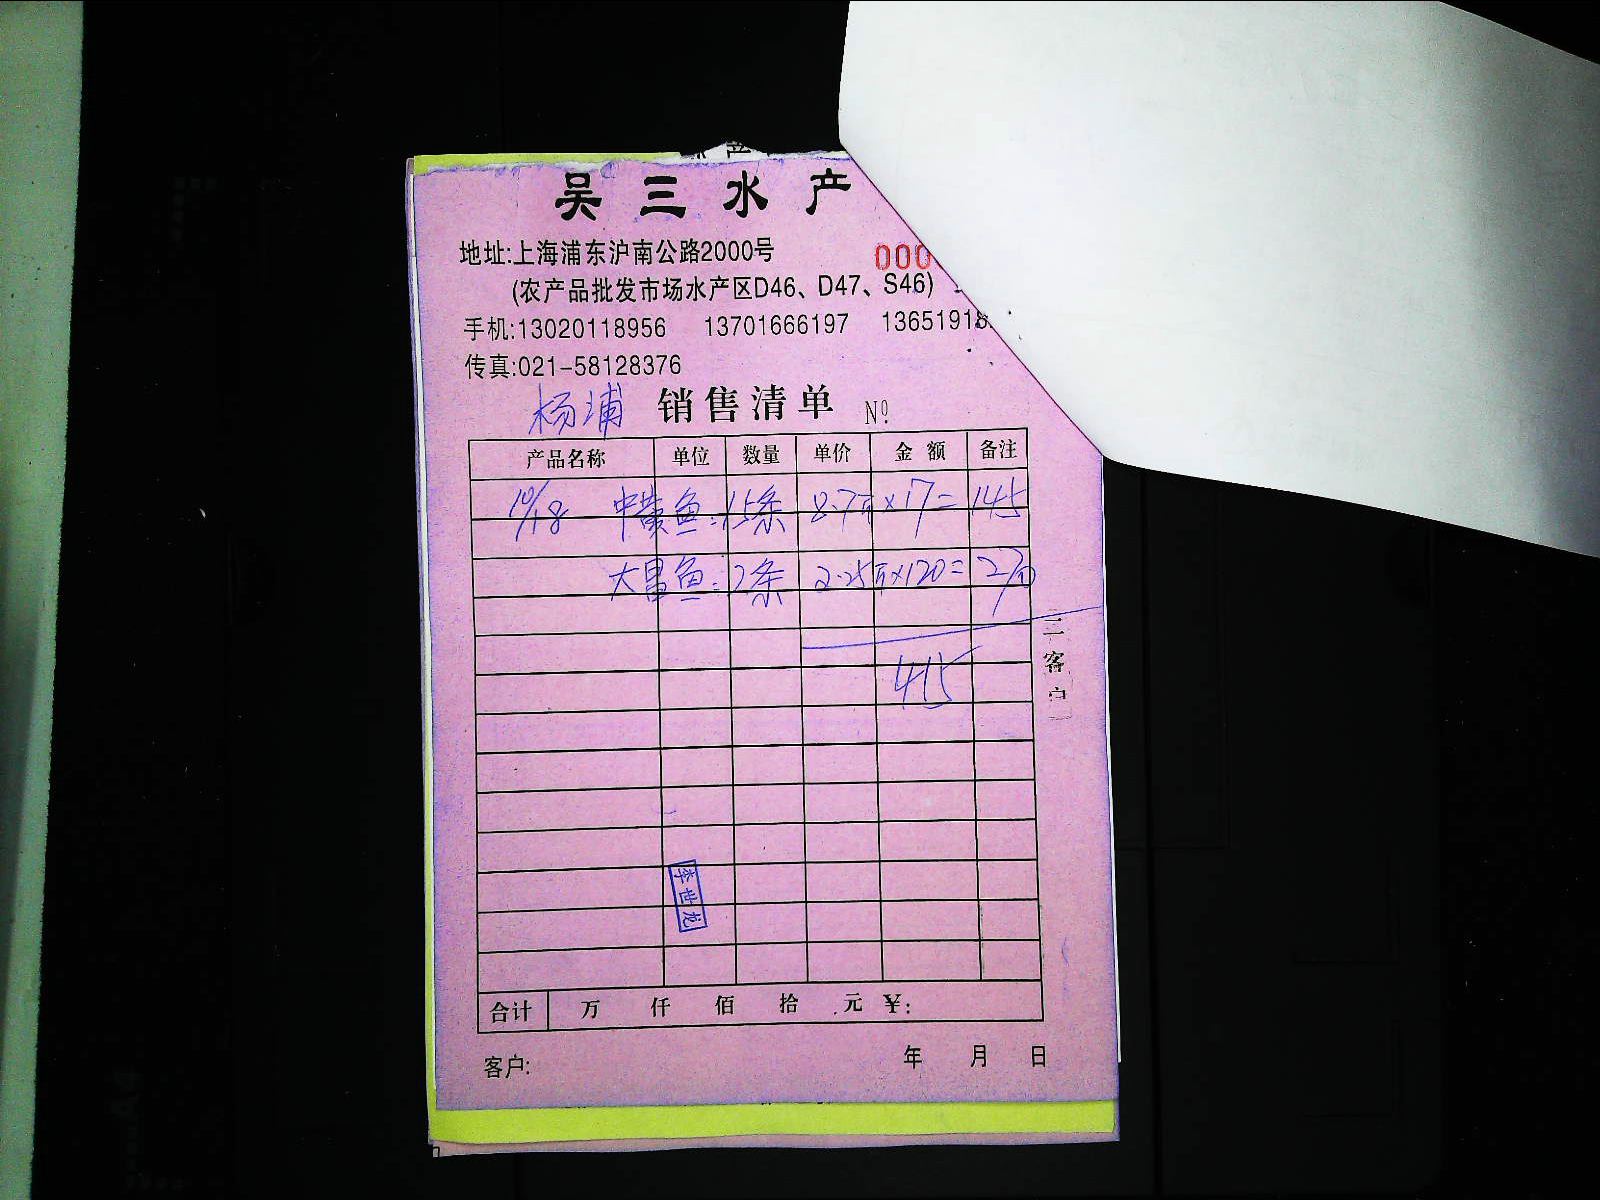 吴三水产
地址:上海浦东沪南公路2000号
000
(农产品批发市场水产区D46、D47、S46)
手机:13020118956 13701666197 1365191
传真:021-58128376
杨浦 销售清单 Nº
产品名称 单位 数量 单价 金额 备注
10/18 中黄鱼:15条 8.7斤×17= 145
大昌鱼:2条 2.25斤×120= 270
415
二客户
李世龙
合计 万 仟 佰 拾 元 ¥:
客户: 年 月 日